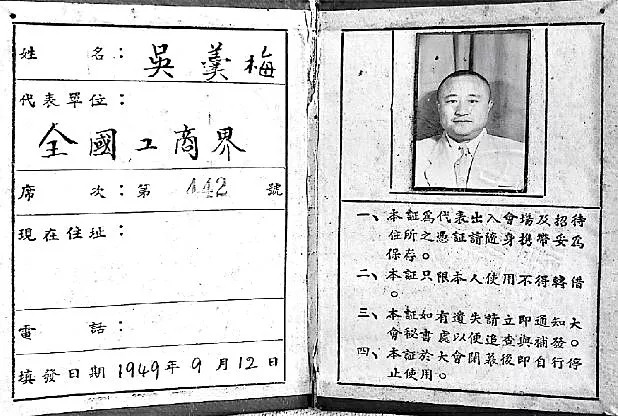 姓名：吳羹梅
代表單位：
全國工商界
席次：第 442 號
現在住址：
電話：
填發日期 1949年9月12日
一、本証爲代表出入會場及招待
住所之憑証請隨身携帶妥爲
保存。
二、本証只限本人使用不得轉借
。
三、本証如有遺失請立即通知大
會秘書處以便追查與補發。
四、本証於大會閉幕後即自行停
止使用。